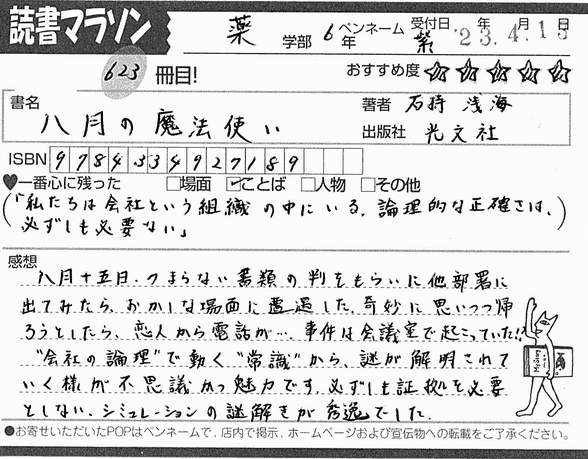 読書マラソン
薬 学部 6年 ペンネーム 紫 受付日 '23.4.15 年 月 日
623 冊目! おすすめ度 ☆☆☆☆☆
書名 八月の魔法使い
著者 石持 浅海
出版社 光文社
ISBN 9784334927189
♥一番心に残った □場面 ☑ことば □人物 □その他
(「私たちは会社という組織の中にいる。論理的な正確さは、
必ずしも必要ない」)
感想
八月十五日。つまらない書類の判をもらいに他部署に
出てみたら、おかしな場面に遭遇した。奇妙に思いつつ帰
ろうとしたら、恋人から電話が…。事件は会議室で起こっていた!!
"会社の論理"で動く"常識"から、謎が解明されて
いく様が不思議かつ魅力です。必ずしも証拠を必要
としない、シミュレーションの謎解きが秀逸でした。
●お寄せいただいたPOPはペンネームで、店内で掲示、ホームページおよび宣伝物への転載をご了承ください。